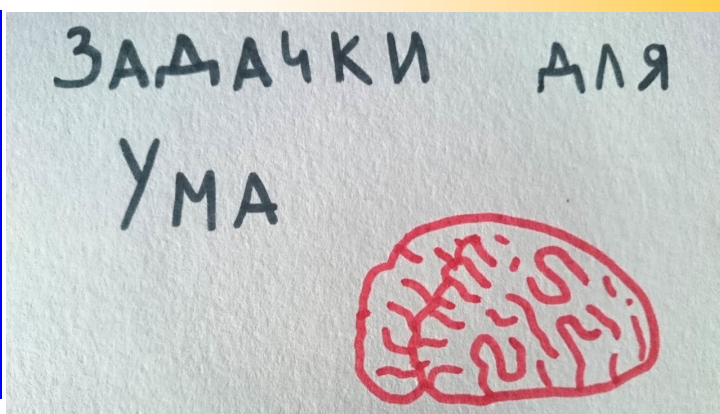 ЗАДАЧКИ для
Ума